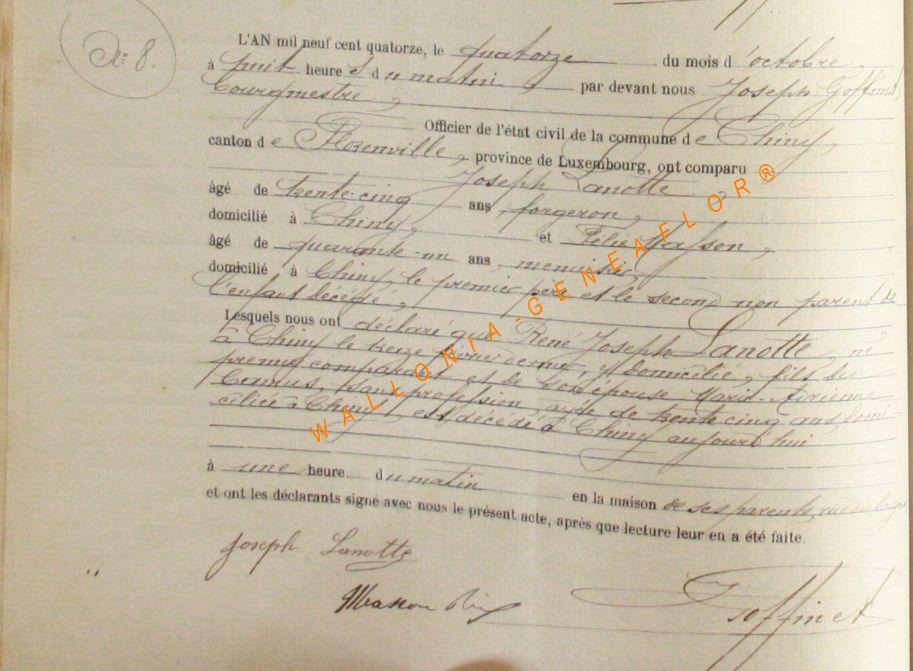 N° 8.
L'AN mil neuf cent quatorze, le quatorze du mois d'octobre,
à huit heures du matin, par devant nous Joseph Goffinet,
bourgmestre,
Officier de l'état civil de la commune de Chiny,
canton de Florenville, province de Luxembourg, ont comparu
Joseph Lanotte,
âgé de trente-cinq ans, forgeron,
domicilié à Chiny, et Masson,
âgé de quarante-un ans, menuisier,
domicilié à Chiny, le premier père et le second non parent de
l'enfant décédé,
Lesquels nous ont déclaré que René Joseph Lanotte, né
à Chiny le treize février dernier, y domicilié, fils du
premier comparant et de son épouse Marie-Adrienne
sans profession, âgée de trente cinq ans, domi-
ciliée à Chiny, est décédé à Chiny aujourd'hui
à une heure du matin en la maison de ses parents, rue du
et ont les déclarants signé avec nous le présent acte, après que lecture leur en a été faite.
Joseph Lanotte
Masson
J Goffinet
WALLONIA.GENEAFLOR®